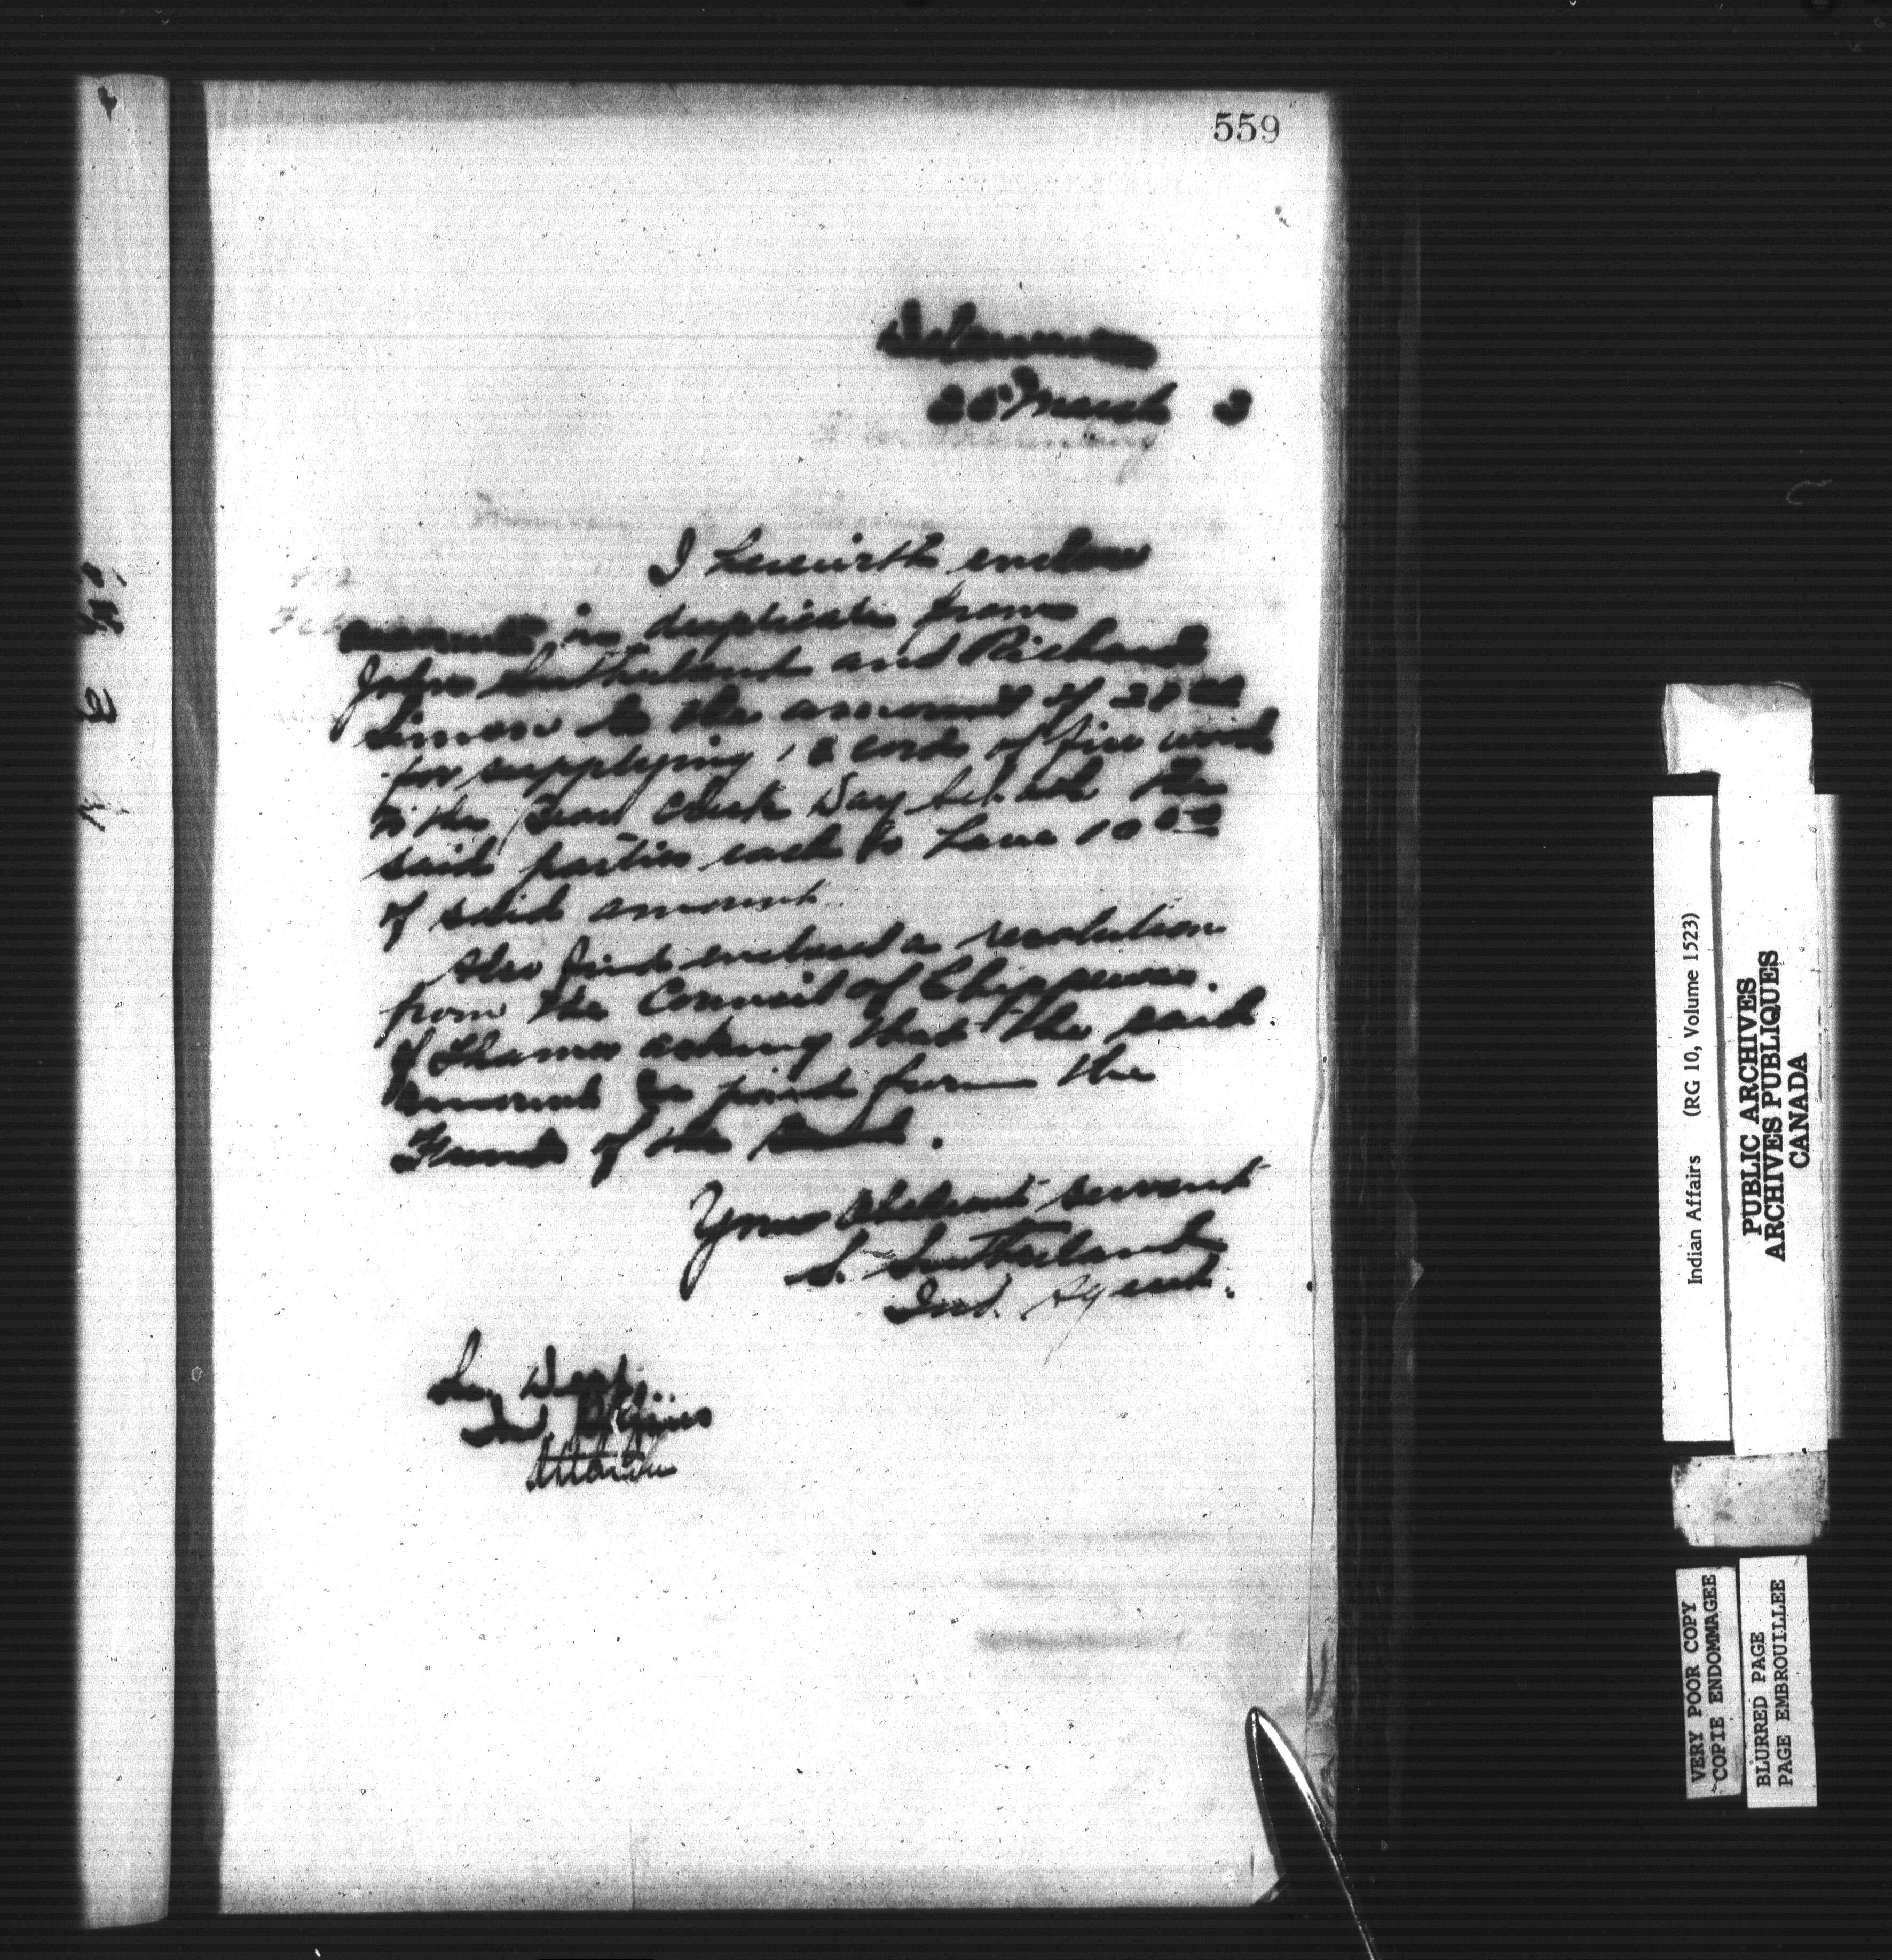 559
Delaware
25 March 3
I herewith enclose
accounts in duplicate from
John Sutherland and Richard
to the amount of
for supplying cords of fire wood
to the Bear Creek Day School the
said parties each to have 10 00
of said amount.
Also find enclosed a resolution
from the Council of Chippewas
of Thames asking that the said
amount be paid from the
Funds of the Band.
Your obedient servant
S. Sutherland
Ind. Agent.
Dept.
Ind. Affairs
Ottawa
Indian Affairs (RG 10, Volume 1523)
PUBLIC ARCHIVES
ARCHIVES PUBLIQUES
CANADA
VERY POOR COPY
COPIE ENDOMMAGEE
BLURRED PAGE
PAGE EMBROUILLEE